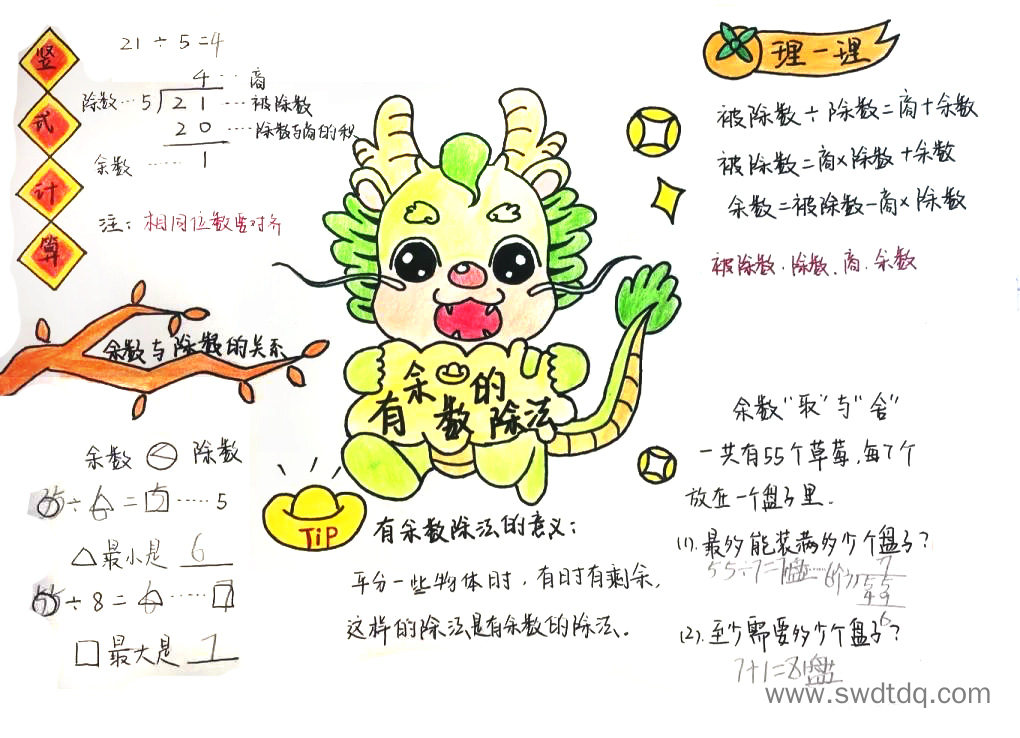 竖式计算
21÷5=4
4 ‥ 商
除数‥5 21 ‥‥被除数
20 ‥‥除数与商的积
余数 ‥‥‥ 1
注：相同位数要对齐
余数与除数的关系
余数 < 除数
÷△=□‥‥‥5
△最小是 6
÷8=○‥‥‥□
□最大是 7
有余数的除法
TiP
有余数除法的意义：
平分一些物体时，有时有剩余，
这样的除法是有余数的除法。
理一理
被除数÷除数=商+余数
被除数=商×除数+余数
余数=被除数-商×除数
被除数、除数、商、余数
余数"取"与"舍"
一共有55个草莓，每7个
放在一个盘子里.
(1).最多能装满多少个盘子？
55÷7=7盘‥‥6个
7
7 55
49
6
(2).至少需要多少个盘子？
7+1=8盘
www.swdtdq.com